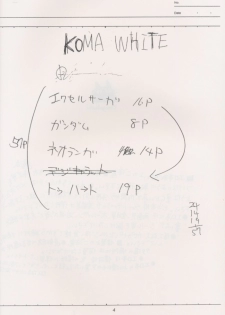 NO.
DATE
KOMA WHITE
エクセルサーガ 16P
ガンダム 8P
ネオランガ 14P
トゥハート 19P
57P
24
14
19
57
4